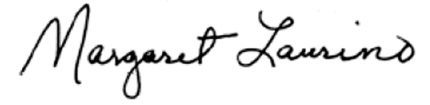 Margaret Laurino